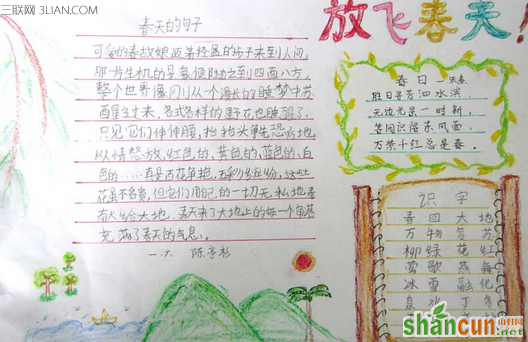 三联网 3LIAN.COM
放飞春天!
春天的句子
可爱的春姑娘迈着轻盈的步子来到人间,
那一片生机的景象便随之到四面八方,
整个世界像刚从一个漫长的睡梦中苏
醒过来,各式各样的野花也睡醒了,
只见它们伸伸腰,抬抬头争先恐后地,
纵情怒放,红色的、黄色的、蓝色的、白
色的……真是万花争艳,五彩缤纷,这些
花虽不名贵,但它们用自己的一切无私地奉
献给大地。春天来了大地上的每一个角落
充满了春天的气息。
一.六 陈亭杉
春日 —朱熹
胜日寻芳泗水滨
无边光景一时新,
等闲识得东风面,
万紫千红总是春。
识字
春回大地
万物复苏
柳绿花红
莺歌燕舞
冰雪融化
泉水丁冬
shancun
山村网
.com